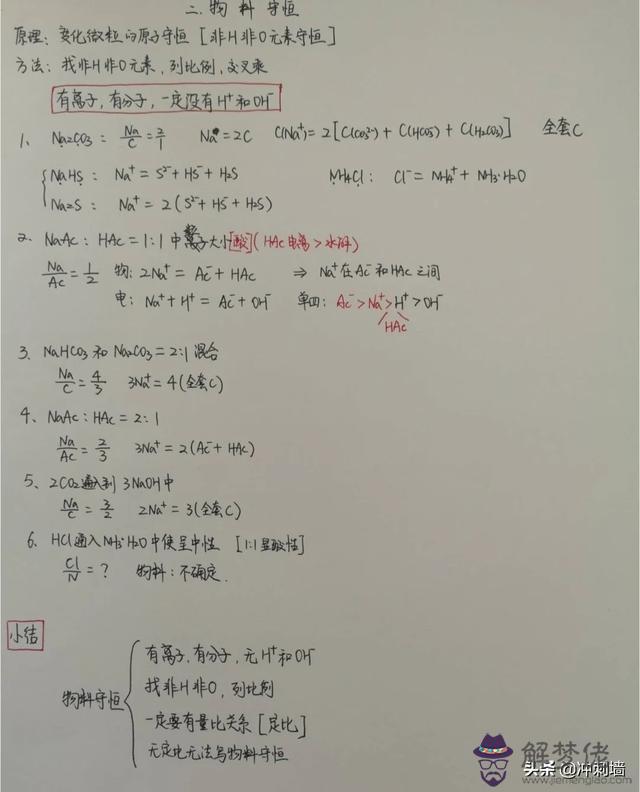 二.物料守恒
原理：变化微粒的原子守恒［非H非O元素守恒］
方法：找非H非O元素，列比例，交叉乘
有离子，有分子，一定没有H⁺和OH⁻
1、Na₂CO₃：Na/C=2/1 Na=2C C(Na⁺)=2[C(CO₃²⁻)+C(HCO₃⁻)+C(H₂CO₃)] 全套C
NaHS：Na⁺=S²⁻+HS⁻+H₂S NH₄Cl：Cl⁻=NH₄⁺+NH₃·H₂O
Na₂S：Na⁺=2(S²⁻+HS⁻+H₂S)
2、NaAc：HAc=1:1中离子大小[酸](HAc电离>水解)
Na/Ac=1/2 物：2Na⁺=Ac⁻+HAc ⇒ Na⁺在Ac⁻和HAc之间
电：Na⁺+H⁺=Ac⁻+OH⁻ 单四：Ac⁻>Na⁺>H⁺>OH⁻
HAc
3、NaHCO₃和Na₂CO₃=2:1混合
Na/C=4/3 3Na⁺=4(全套C)
4、NaAc:HAc=2:1
Na/Ac=2/3 3Na⁺=2(Ac⁻+HAc)
5、2CO₂通入到3NaOH中
Na/C=3/2 2Na⁺=3(全套C)
6、HCl通入NH₃·H₂O中使呈中性 [1:1显酸性]
Cl/N=？ 物料：不确定.
小结
物料守恒
有离子，有分子，无H⁺和OH⁻
找非H非O，列比例
一定要有量比关系［定比］
无定比无法写物料守恒
解梦佬
www.jiemenglao.com
头条@冲刺墙